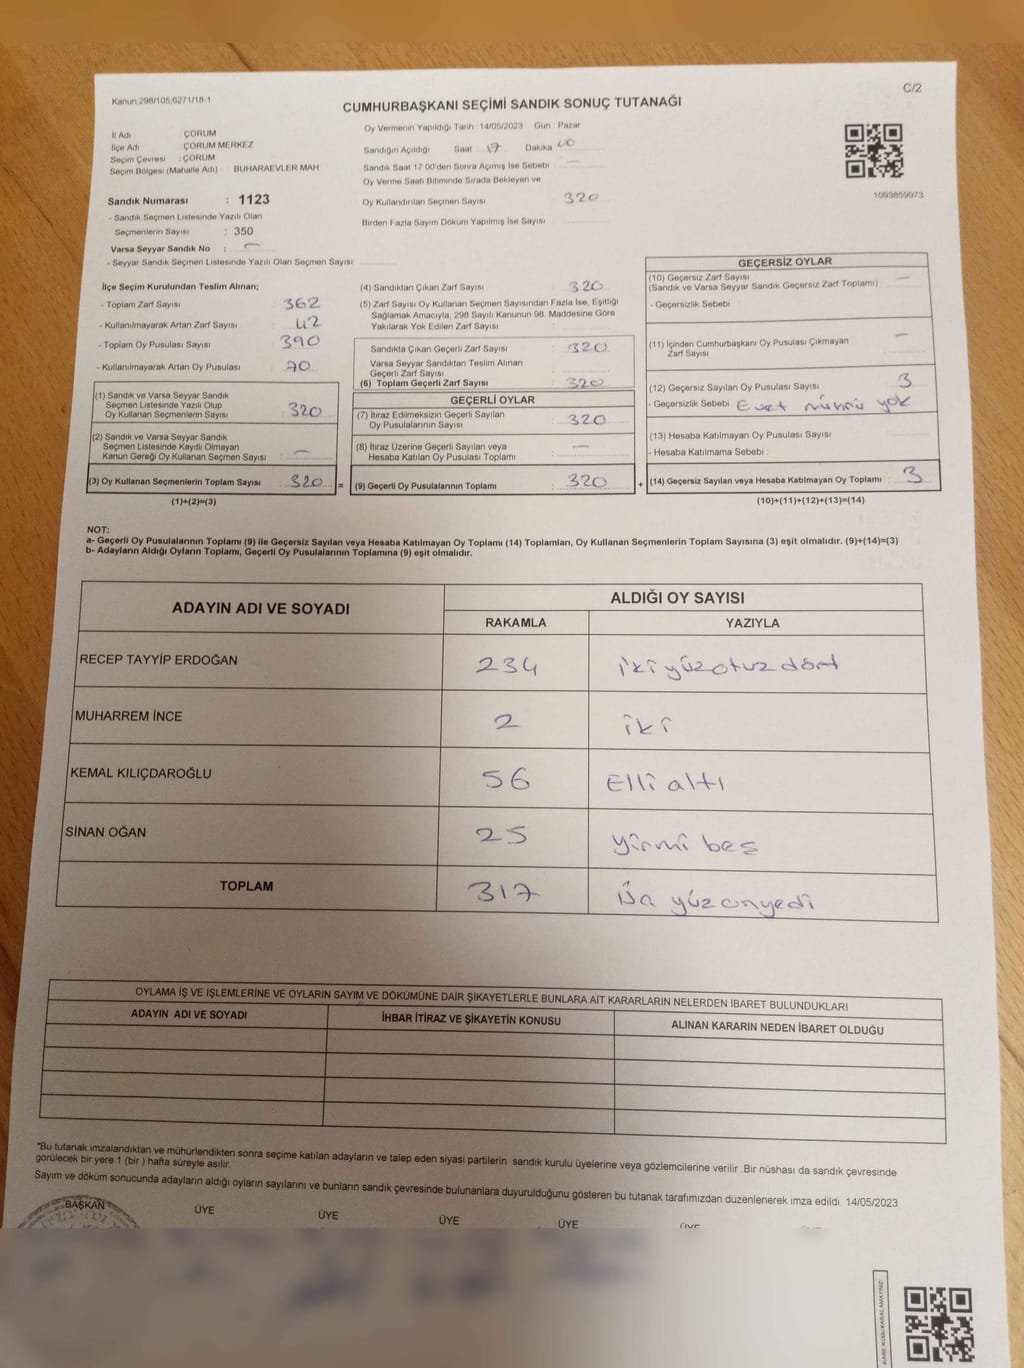 Kanun:298/105;6271/18-1
C/2
CUMHURBAŞKANI SEÇİMİ SANDIK SONUÇ TUTANAĞI
İl Adı ÇORUM
İlçe Adı ÇORUM MERKEZ
Seçim Çevresi : ÇORUM
Seçim Bölgesi (Mahalle Adı) BUHARAEVLER MAH
Sandık Numarası : 1123
- Sandık Seçmen Listesinde Yazılı Olan
Seçmenlerin Sayısı : 350
Varsa Seyyar Sandık No : —
- Seyyar Sandık Seçmen Listesinde Yazılı Olan Seçmen Sayısı
Oy Vermenin Yapıldığı Tarih :14/05/2023 Gün Pazar
Sandığın Açıldığı Saat : 17 Dakika 00
Sandık Saat 17:00'den Sonra Açılmış İse Sebebi —
Oy Verme Saati Bitiminde Sırada Bekleyen ve
Oy Kullandırılan Seçmen Sayısı 320
Birden Fazla Sayım Döküm Yapılmış İse Sayısı
1093859973
İlçe Seçim Kurulundan Teslim Alınan;
- Toplam Zarf Sayısı 362
- Kullanılmayarak Artan Zarf Sayısı 42
- Toplam Oy Pusulası Sayısı 390
- Kullanılmayarak Artan Oy Pusulası 70
(1) Sandık ve Varsa Seyyar Sandık
Seçmen Listesinde Yazılı Olup
Oy Kullanan Seçmenlerin Sayısı 320
(2) Sandık ve Varsa Seyyar Sandık
Seçmen Listesinde Kayıtlı Olmayan
Kanun Gereği Oy Kullanan Seçmen Sayısı —
(3) Oy Kullanan Seçmenlerin Toplam Sayısı : 320 =
(1)+(2)=(3)
(4) Sandıktan Çıkan Zarf Sayısı 320
(5) Zarf Sayısı Oy Kullanan Seçmen Sayısından Fazla İse, Eşitliği
Sağlamak Amacıyla, 298 Sayılı Kanunun 98. Maddesine Göre
Yakılarak Yok Edilen Zarf Sayısı
Sandıkta Çıkan Geçerli Zarf Sayısı : 320
Varsa Seyyar Sandıktan Teslim Alınan
Geçerli Zarf Sayısı
(6) Toplam Geçerli Zarf Sayısı : 320
GEÇERLİ OYLAR
(7) İtiraz Edilmeksizin Geçerli Sayılan
Oy Pusulalarının Sayısı : 320
(8) İtiraz Üzerine Geçerli Sayılan veya
Hesaba Katılan Oy Pusulası Toplamı : —
(9) Geçerli Oy Pusulalarının Toplamı : 320 +
GEÇERSİZ OYLAR
(10) Geçersiz Zarf Sayısı —
(Sandık ve Varsa Seyyar Sandık Geçersiz Zarf Toplamı)
- Geçersizlik Sebebi :
(11) İçinden Cumhurbaşkanı Oy Pusulası Çıkmayan —
Zarf Sayısı
(12) Geçersiz Sayılan Oy Pusulası Sayısı : 3
- Geçersizlik Sebebi : Evet mührü yok
(13) Hesaba Katılmayan Oy Pusulası Sayısı :
- Hesaba Katılmama Sebebi :
(14) Geçersiz Sayılan veya Hesaba Katılmayan Oy Toplamı : 3
(10)+(11)+(12)+(13)=(14)
NOT:
a- Geçerli Oy Pusulalarının Toplamı (9) ile Geçersiz Sayılan veya Hesaba Katılmayan Oy Toplamı (14) Toplamları, Oy Kullanan Seçmenlerin Toplam Sayısına (3) eşit olmalıdır. (9)+(14)=(3)
b- Adayların Aldığı Oyların Toplamı, Geçerli Oy Pusulalarının Toplamına (9) eşit olmalıdır.
ADAYIN ADI VE SOYADI ALDIĞI OY SAYISI
RAKAMLA YAZIYLA
RECEP TAYYİP ERDOĞAN 234 ikiyüzotuzdört
MUHARREM İNCE 2 iki
KEMAL KILIÇDAROĞLU 56 Elli altı
SİNAN OĞAN 25 yirmi beş
TOPLAM 317 Üç yüzonyedi
OYLAMA İŞ VE İŞLEMLERİNE VE OYLARIN SAYIM VE DÖKÜMÜNE DAİR ŞİKAYETLERLE BUNLARA AİT KARARLARIN NELERDEN İBARET BULUNDUKLARI
ADAYIN ADI VE SOYADI İHBAR İTİRAZ VE ŞİKAYETİN KONUSU ALINAN KARARIN NEDEN İBARET OLDUĞU
*Bu tutanak imzalandıktan ve mühürlendikten sonra seçime katılan adayların ve talep eden siyasi partilerin sandık kurulu üyelerine veya gözlemcilerine verilir. Bir nüshası da sandık çevresinde
görülecek bir yere 1 (bir) hafta süreyle asılır.
Sayım ve döküm sonucunda adayların aldığı oyların sayılarını ve bunların sandık çevresinde bulunanlara duyurulduğunu gösteren bu tutanak tarafımızdan düzenlenerek imza edildi. 14/05/2023
BAŞKAN ÜYE ÜYE ÜYE ÜYE ÜYE
KARE KODU KARALAMAYINIZ!